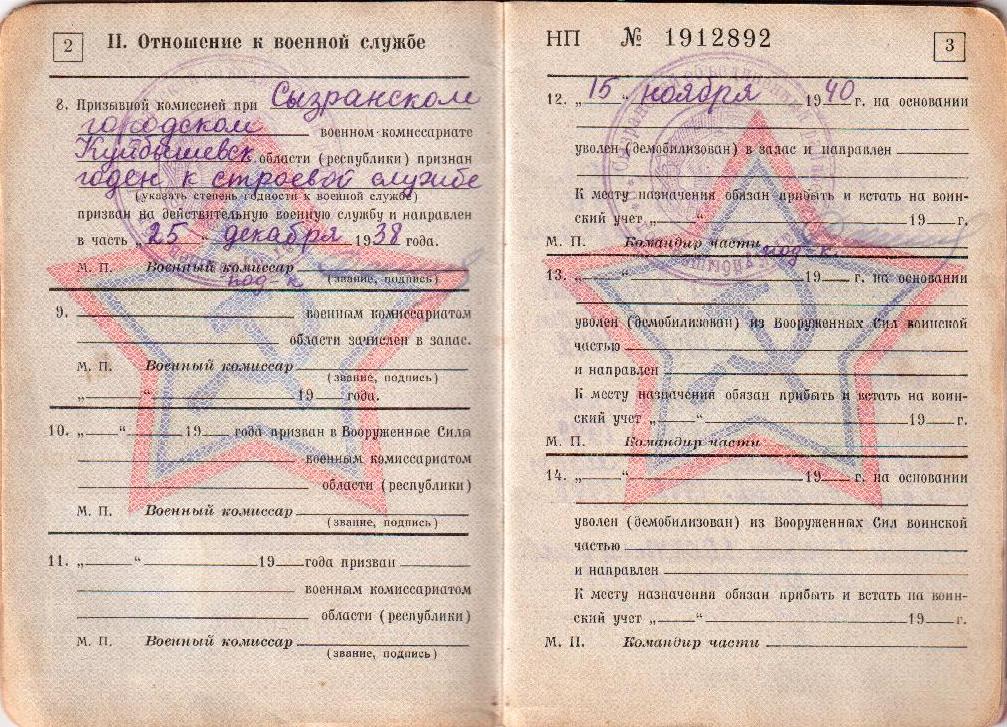 2
II. Отношение к военной службе
8. Призывной комиссией при Сызранском
городском военном комиссариате
Куйбышевск. области (республики) признан
годен к строевой службе
(указать степень годности к военной службе)
призван на действительную военную службу и направлен
в часть „25“ декабря 1938 года.
М. П. Военный комиссар
под-к (звание, подпись)
9. военным комиссариатом
области зачислен в запас.
М. П. Военный комиссар
(звание, подпись)
„ “ 19 года.
10. „ “ 19 года призван в Вооруженные Силы
военным комиссариатом
области (республики)
М. П. Военный комиссар
(звание, подпись)
11. „ “ 19 года призван
военным комиссариатом
области (республики)
М. П. Военный комиссар
(звание, подпись)
НП № 1912892
3
12. „15“ ноября 1940 г. на основании
уволен (демобилизован) в запас и направлен
К месту назначения обязан прибыть и встать на воин-
ский учет „ “ 19 г.
М. П. Командир части под-к.
13. „ “ 19 г. на основании
уволен (демобилизован) из Вооруженных Сил воинской
частью
и направлен
К месту назначения обязан прибыть и встать на воин-
ский учет „ “ 19 г.
М. П. Командир части
14. „ “ 19 г. на основании
уволен (демобилизован) из Вооруженных Сил воинской
частью
и направлен
К месту назначения обязан прибыть и встать на воин-
ский учет „ “ 19 г.
М. П. Командир части